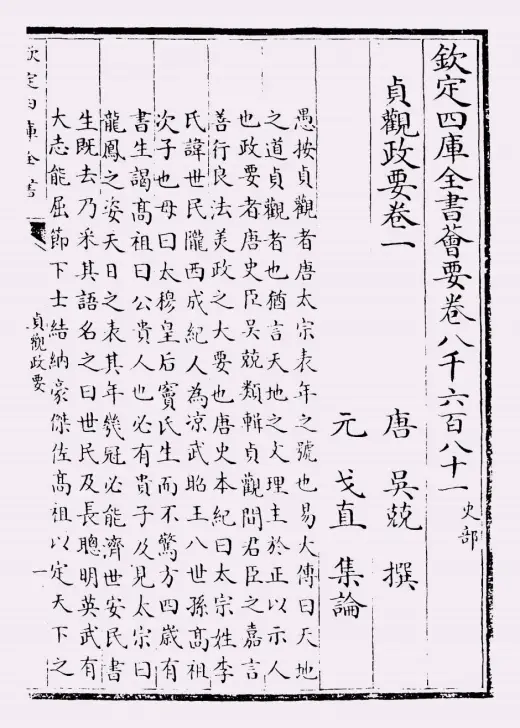 欽定四庫全書薈要卷八千六百八十一 史部
貞觀政要卷一
唐 吳兢 撰
元 戈直 集論
愚按貞觀者唐太宗表年之號也易大傳曰天地
之道貞觀者也猶言天地之文理主於正以示人
也政要者唐史臣吳兢類輯貞觀間君臣之嘉言
善行良法美政之大要也唐史本紀曰太宗姓李
氏諱世民隴西成紀人為涼武昭王八世孫髙祖
次子也母曰太穆皇后竇氏生而不驚方四歲有
書生謁髙祖曰公貴人也必有貴子及見太宗曰
龍鳳之姿天日之表其年幾冠必能濟世安民書
生既去乃采其語名之曰世民及長聰明英武有
大志能屈節下士結納豪傑佐髙祖以定天下之
欽定四庫全書
貞觀政要
一